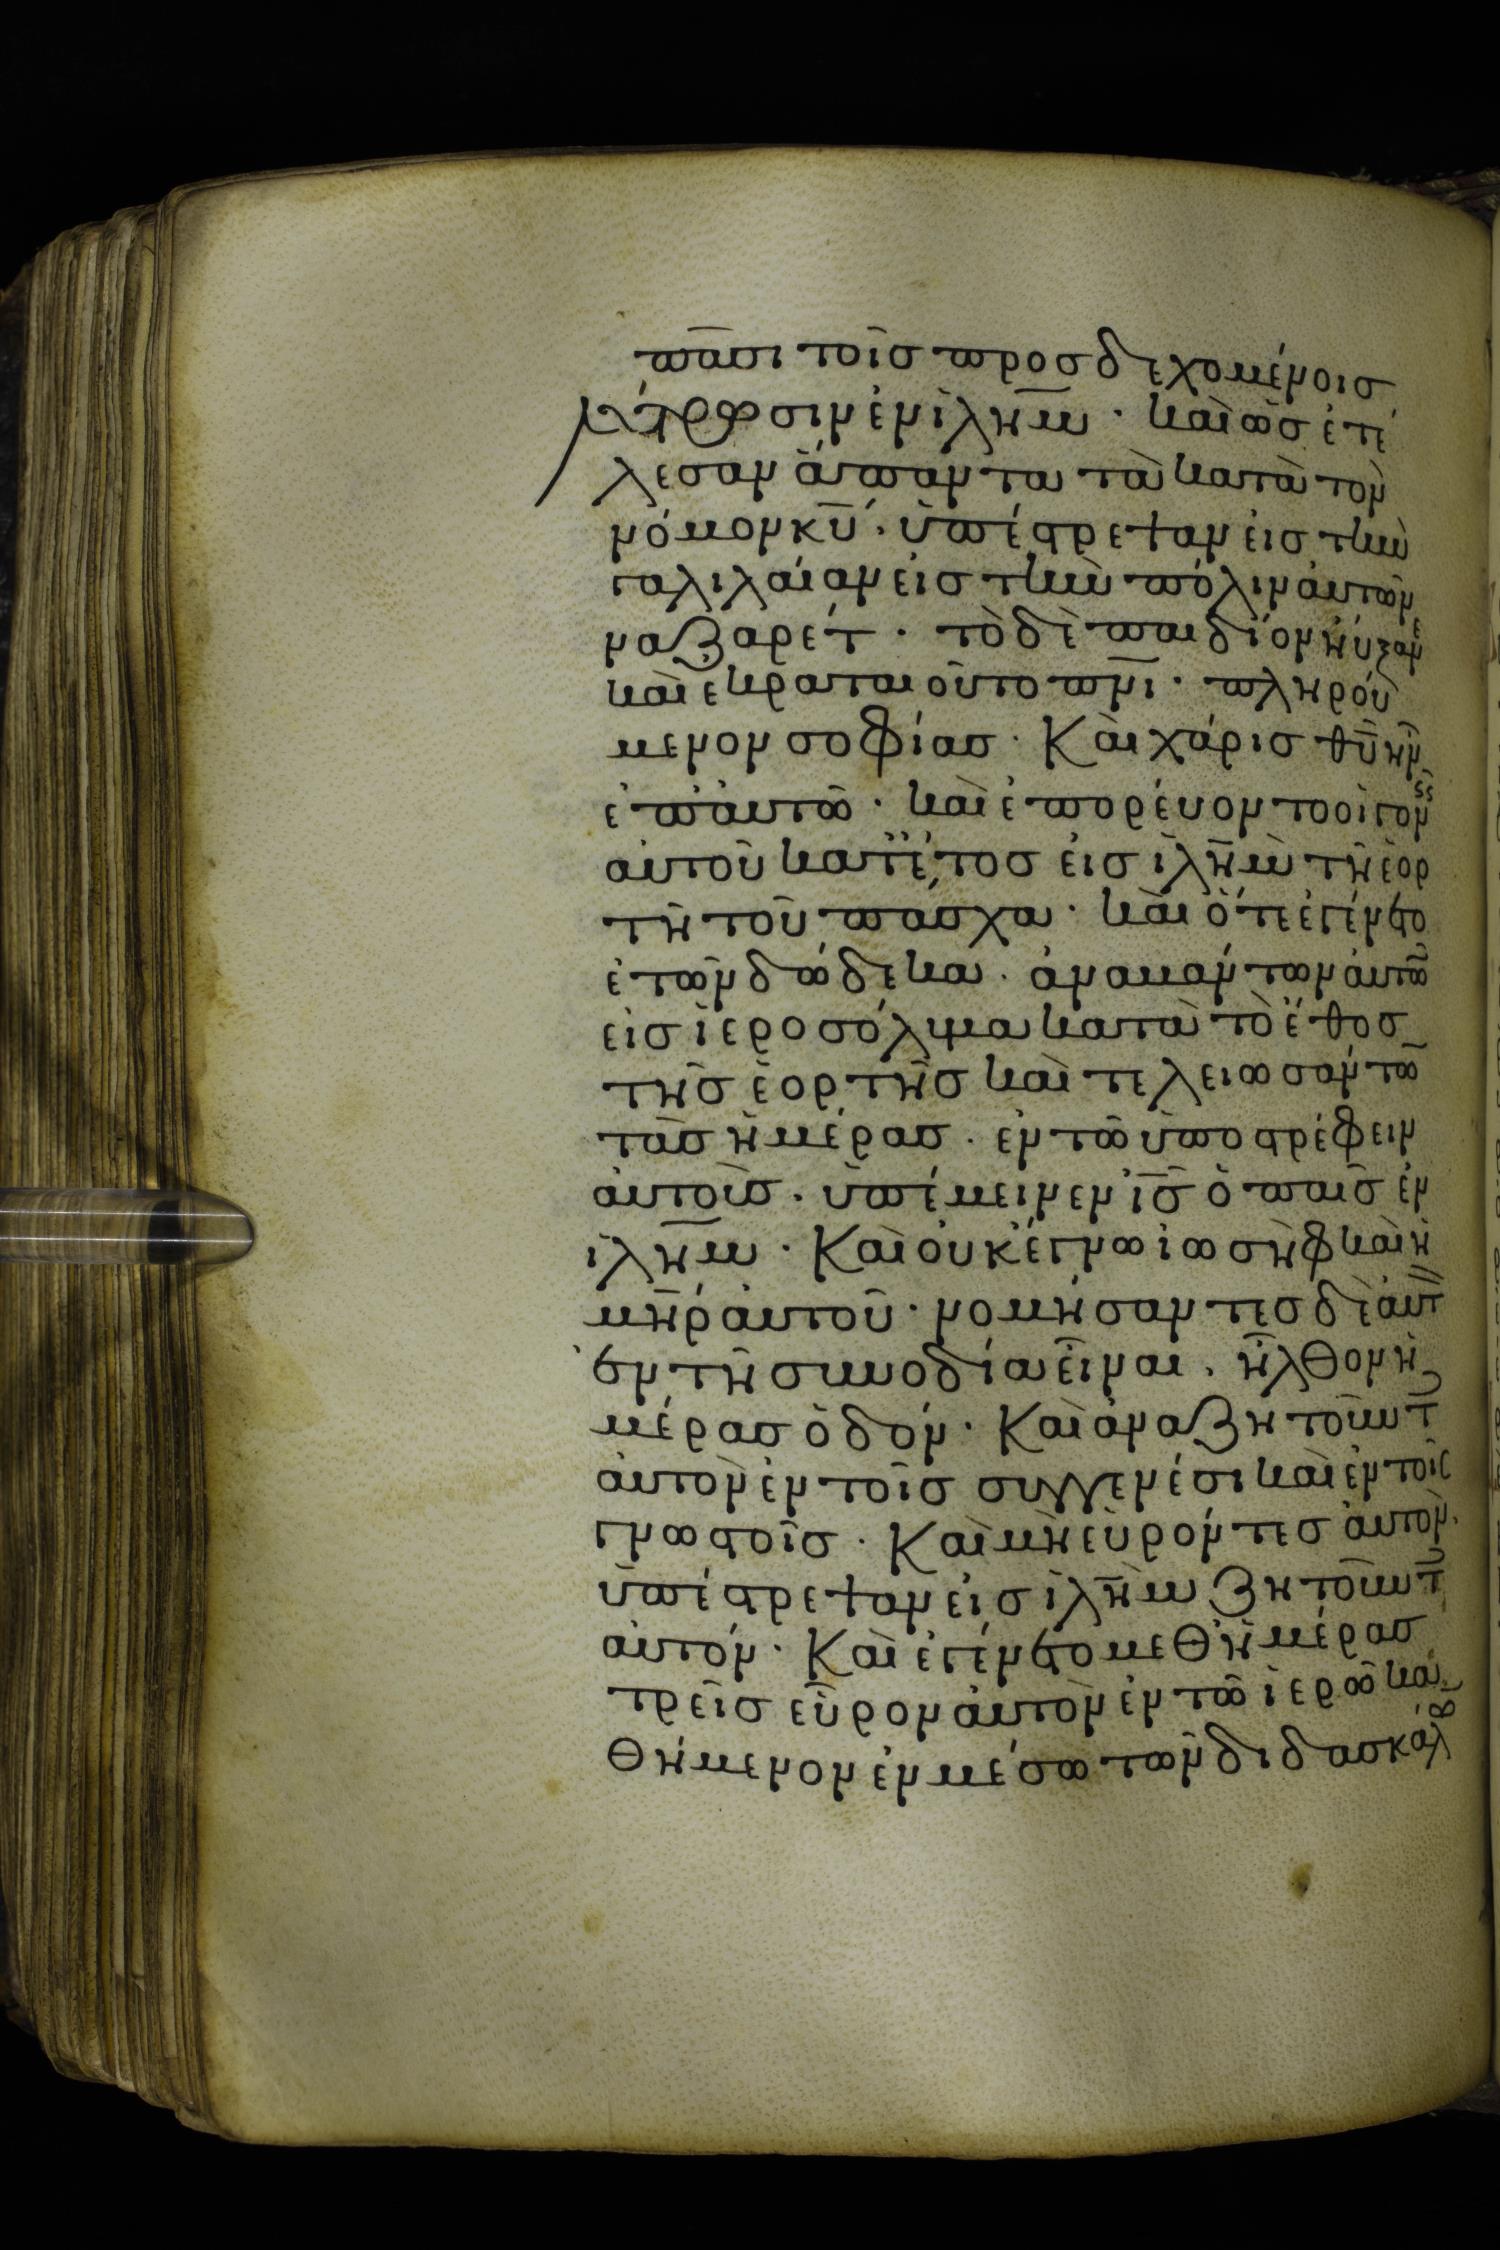 πᾶσι τοῖσ προσδεχομένοισ
λύτρωσιν ἐν ἰλῆμ · καὶ ὡσ ἐτέ
λεσαν ἅπαντα τὰ κατὰ τὸν
νόμον κῡ · ὑπέστρεψαν εἰσ τὴν
γαλιλαίαν εἰσ τὴν πόλιν αὐτῶν
ναζαρέτ · τὸ δὲ παιδίον ηὔξανε
καὶ εκραταιοῦτο πνῑ · πληρού
μενον σοφίασ · Καὶ χάρισ θῡ ἦν
ἐπ' ἀυτῶ · καὶ ἐπορέυοντο οἱ γονεῖς
αὐτοῦ κατ' έτοσ εἰσ ἰλῆμ τῆ ἑορ
τῆ τοῦ πάσχα · καὶ ὅτε ἐγένετο
ἐτῶν δώδεκα · ἀναβάντων ἀυτῶν
εἰσ ἱεροσόλυμα κατὰ τὸ ἔθοσ
τῆσ ἑορτῆσ καὶ τελειωσάντων
τὰσ ἡμέρασ · ἐν τῶ ὑποστρέφειν
ἀυτοὺσ · ὑπέμεινεν ἰσ̄ ὁ παῖσ ἐν
ἰλῆμ · Καὶ οὐκ έγνω ἰωσὴφ καὶ ἡ
μη̄ρ ἀυτοῦ · νομήσαντεσ δὲ ἀυτὸν
ἐν τῆ συνοδία εἶναι · ἦλθον ἡ
μέρασ ὁδόν · Καὶ ἀναζητοῦντες
ἀυτὸν ἐν τοῖσ συγγενέσι καὶ ἐν τοῖς
γνωστοῖσ · Καὶ μὴ εὑρόντεσ ἀυτὸν ·
ὑπέστρεψαν εἰσ ἰλῆμ ζητοῦντες
αὐτόν · Καὶ ἐγένετο μεθ' ἡμέρασ
τρεῖσ εὗρον ἀυτὸν ἐν τῶ ἱερῶ κα
θήμενον ἐν μέσω τῶν διδασκάλων